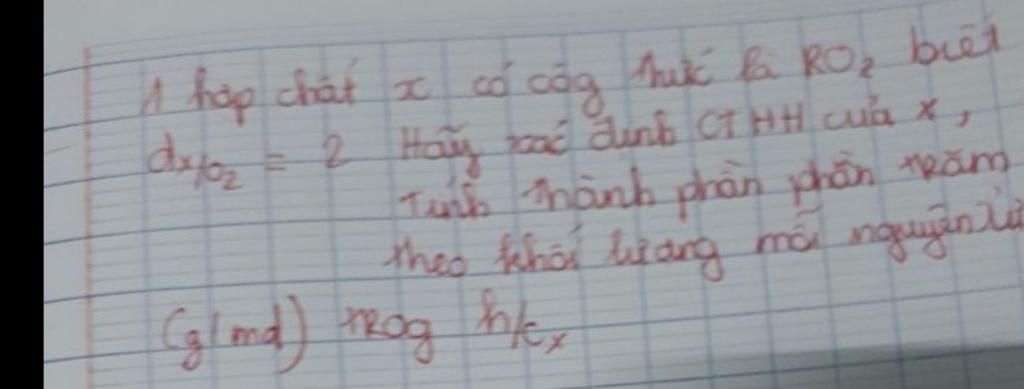 1 hợp chất x có côg thức là RO2 biết
dx/O2 = 2 Hãy xác định CTHH của x,
Tính thành phần phần trăm
theo khối lượng mỗi nguyên tử
(g/mol) trog h/c x